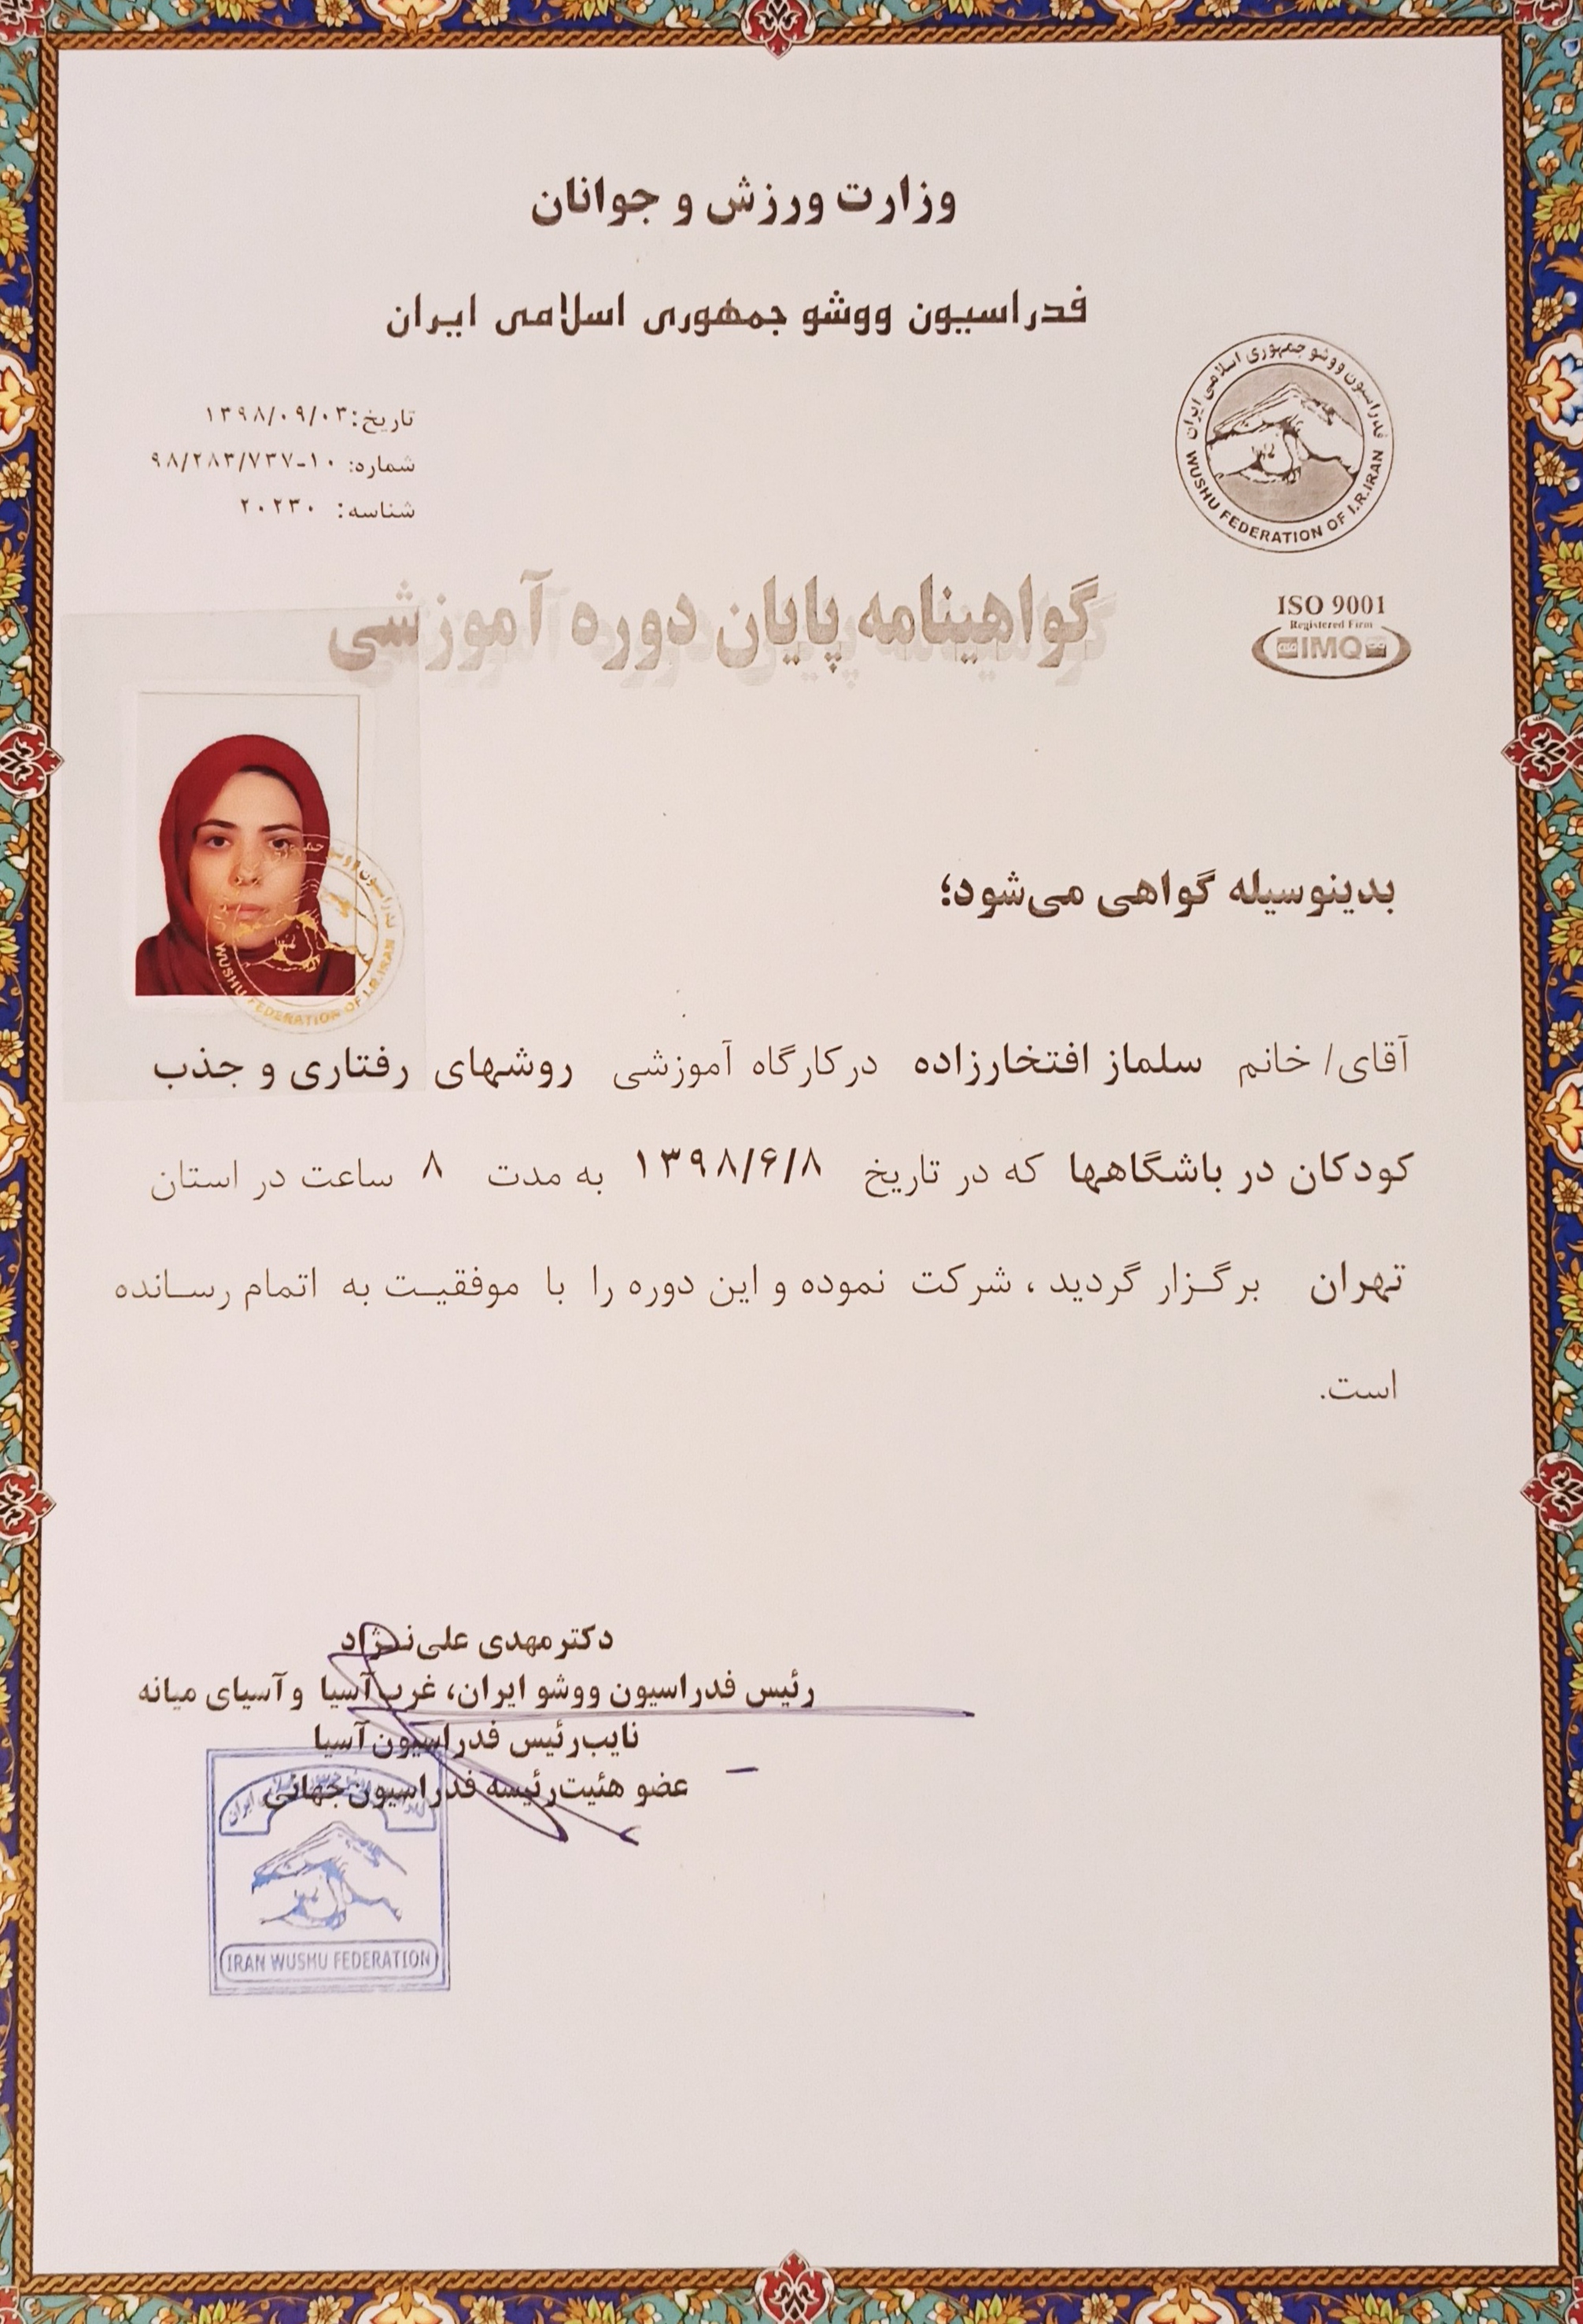 وزارت ورزش و جوانان
فدراسیون ووشو جمهوری اسلامی ایران
تاریخ: ۱۳۹۸/۰۹/۰۳
شماره: ۱۰-۹۸/۲۸۳/۷۳۷
شناسه: ۲۰۲۳۰
فدراسیون ووشو جمهوری اسلامی ایران
WUSHU FEDERATION OF I.R.IRAN
گواهینامه پایان دوره آموزشی
ISO 9001
Registered Firm
IMQ
WUSHU FEDERATION OF I.R.IRAN
بدینوسیله گواهی می‌شود؛
آقای/ خانم سلماز افتخارزاده درکارگاه آموزشی روشهای رفتاری و جذب
کودکان در باشگاهها که در تاریخ ۱۳۹۸/۶/۸ به مدت ۸ ساعت در استان
تهران برگزار گردید ، شرکت نموده و این دوره را با موفقیت به اتمام رسانده
است.
دکتر مهدی علی‌نژاد
رئیس فدراسیون ووشو ایران، غرب‌آسیا و آسیای میانه
نایب‌رئیس فدراسیون آسیا
عضو هئیت‌رئیسه فدراسیون‌جهانی
IRAN WUSHU FEDERATION